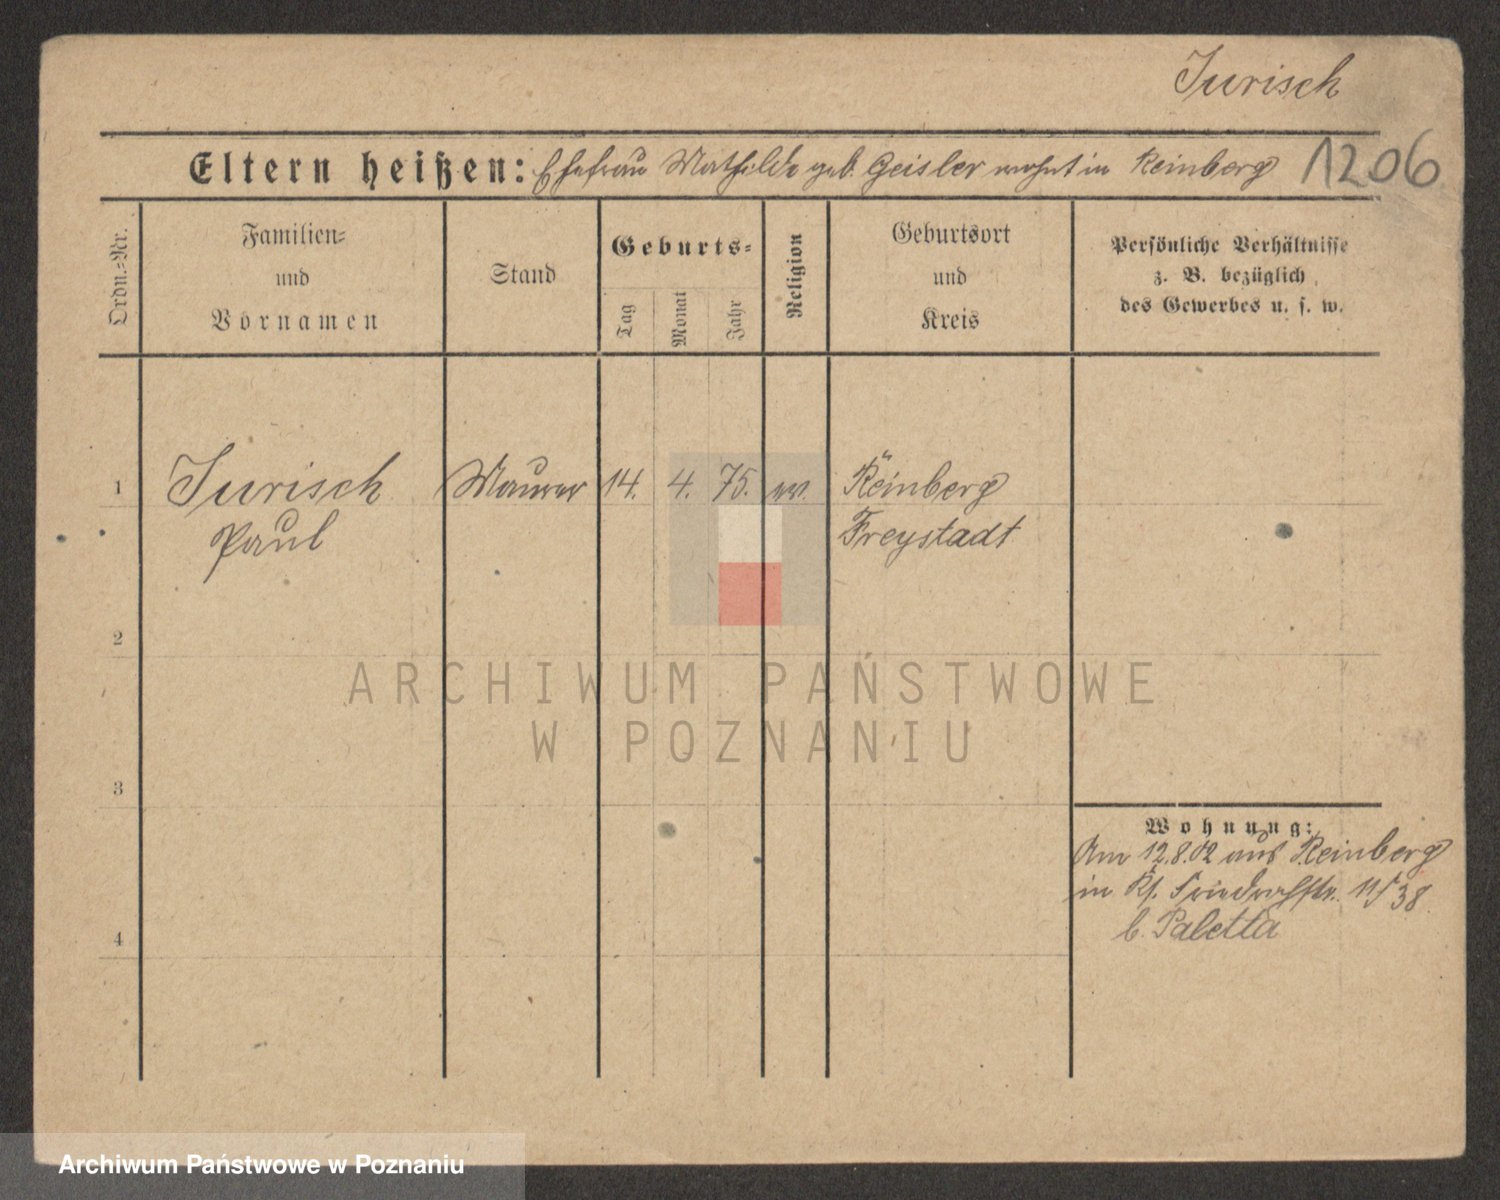 Jurisch
Eltern heißen: Ehefrau Mathilde geb. Geisler wohnt in Reinberg 1206
Ordn.=Nr.
Familien=
und
Vornamen
Stand
Geburts=
Tag
Monat
Jahr
Religion
Geburtsort
und
Kreis
Persönliche Verhältnisse
z. B. bezüglich
des Gewerbes u. s. w.
1 Jurisch Maurer 14. 4. 75. ev. Reinberg
Paul Freystadt
2
ARCHIWUM PAŃSTWOWE
W POZNANIU
3
Wohnung:
Am 12.8.02 aus Reinberg
in Friedrichstr. 11/38
4 b. Paletta
Archiwum Państwowe w Poznaniu